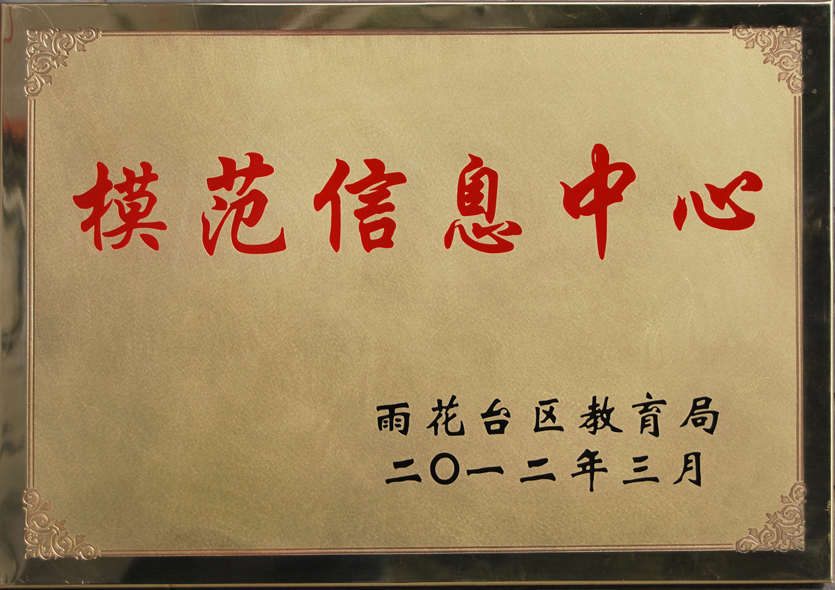 模范信息中心
雨花台区教育局
二〇一二年三月